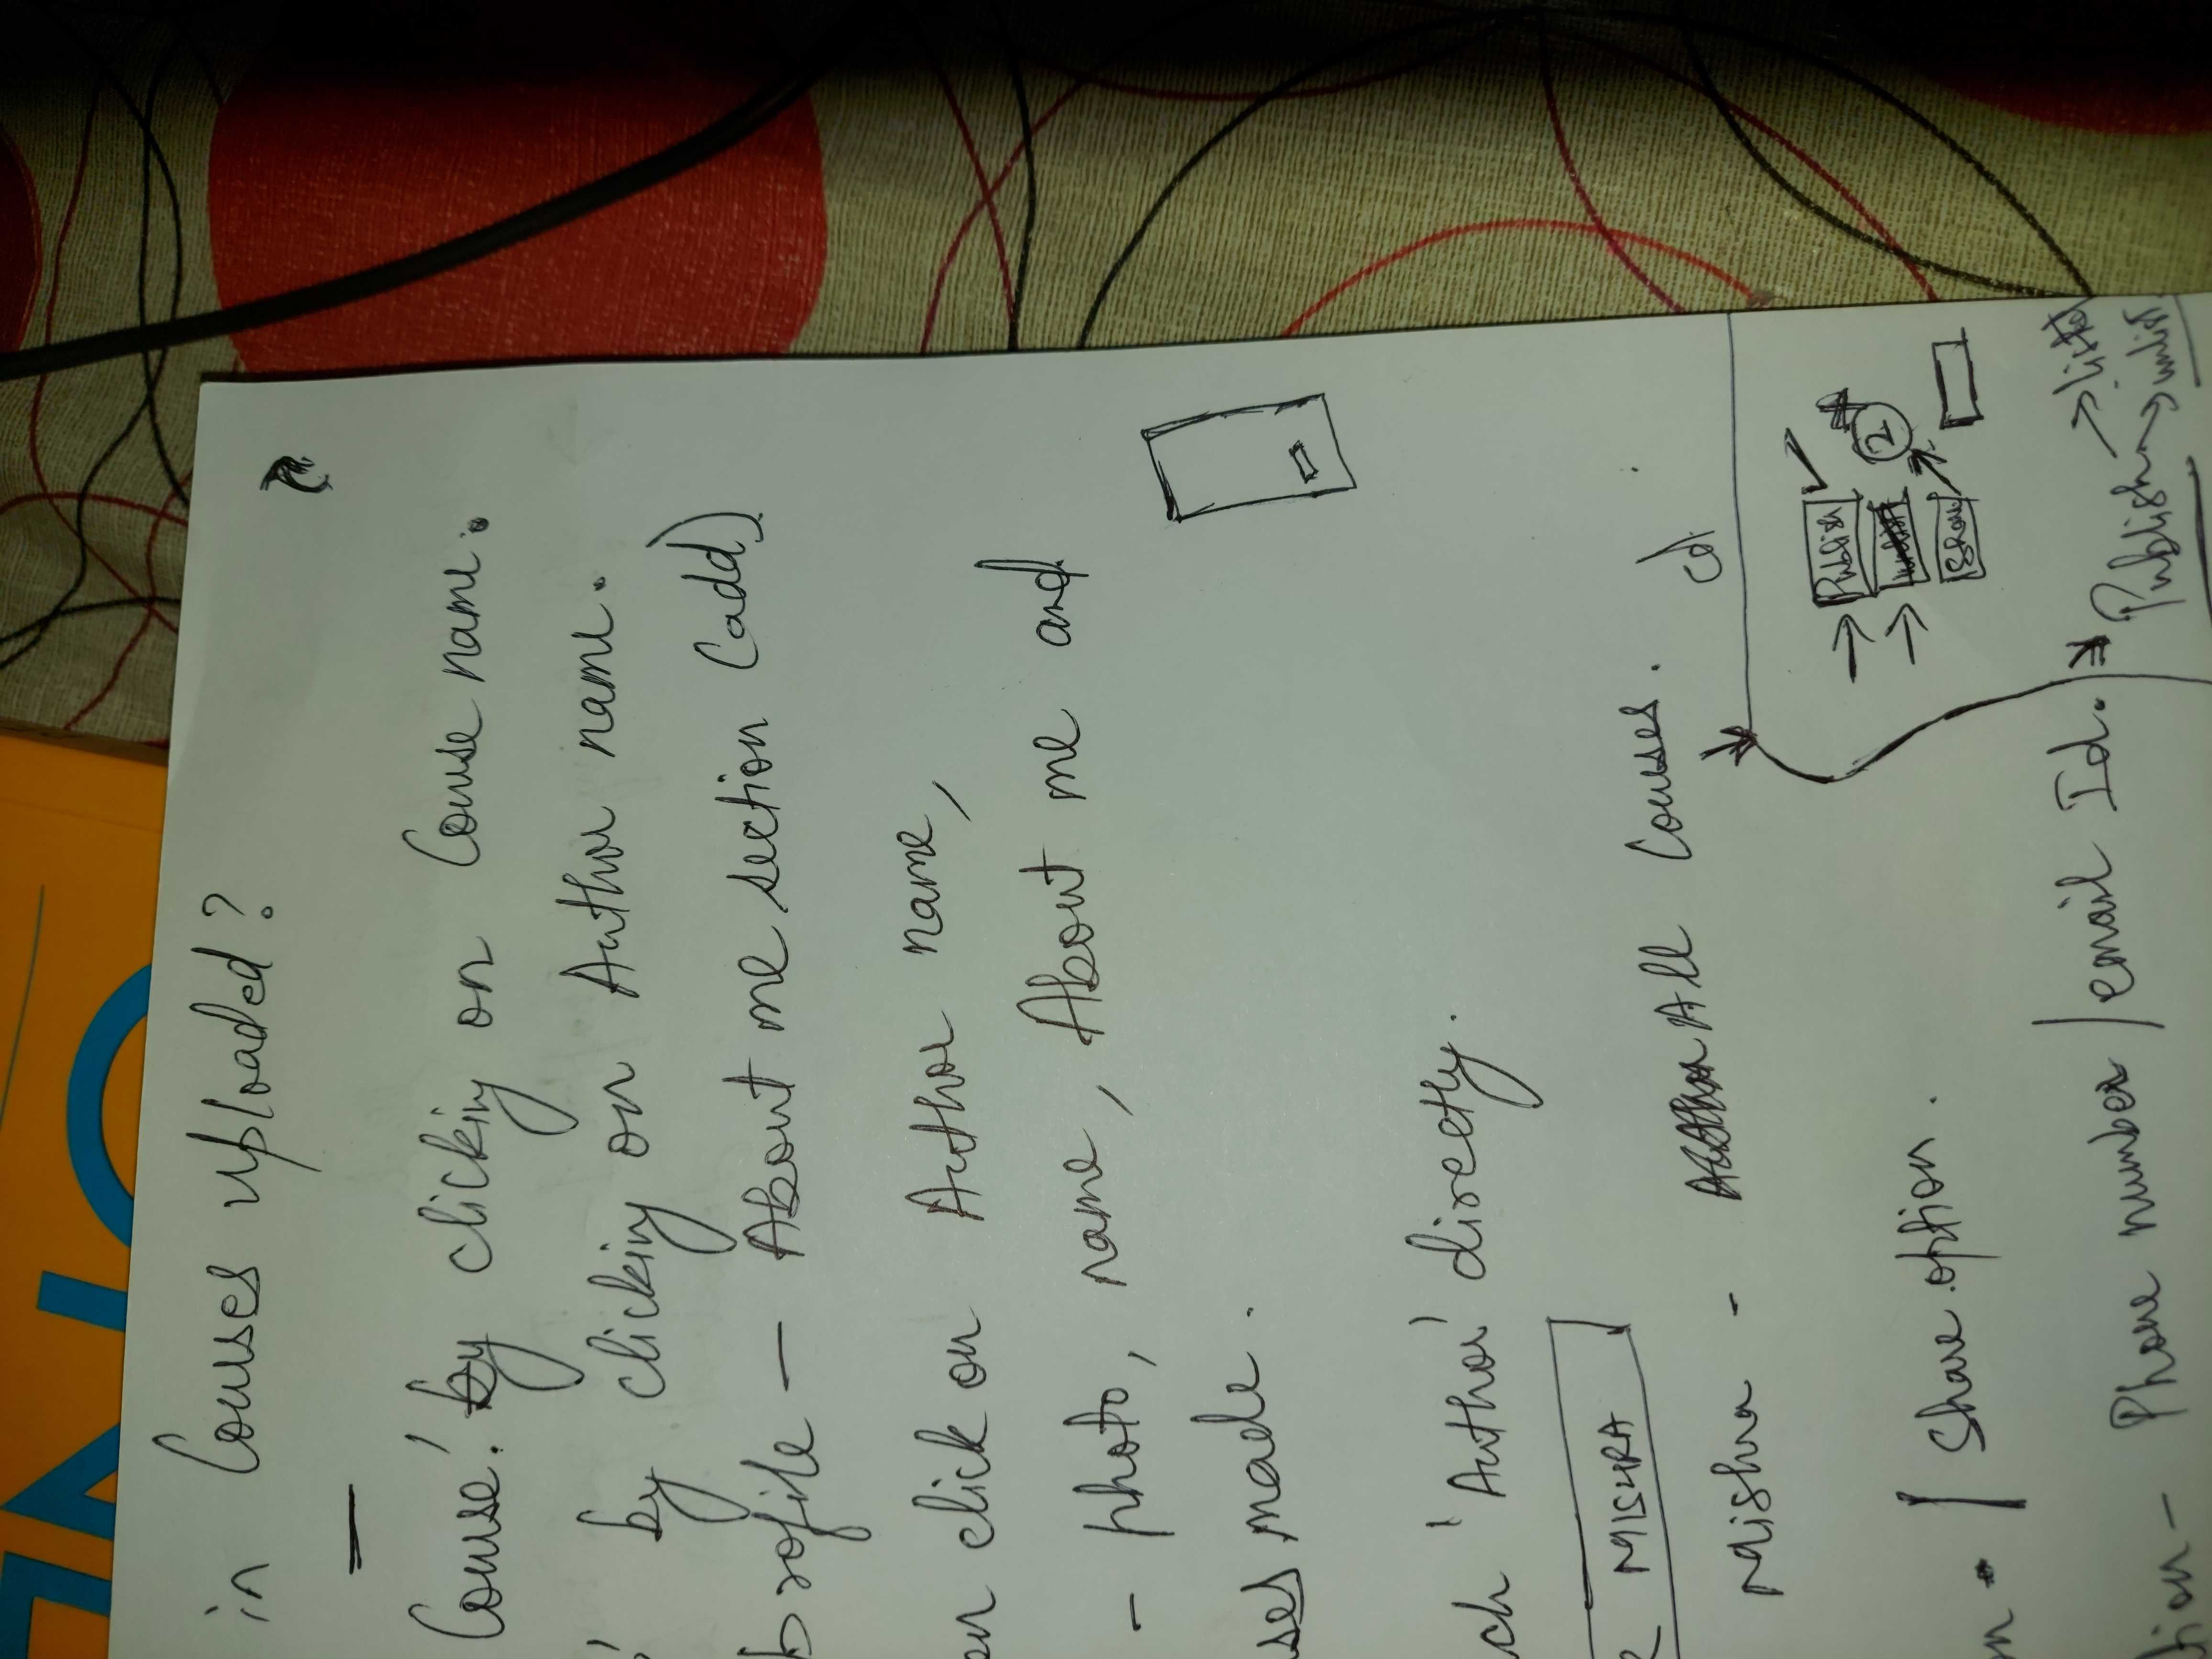 in Courses uploaded?
Course'. by clicking on Course name.
' by clicking on Author name.
profile - About me section (add)
click on Author name,
- photo, name, About me and
ses made.
ch 'Author' directly.
MISHRA
Mishra - All Courses.
cd
Publish
unlist
2
Share
/ Share option.
tion - Phone number / email Id.
Publish
listed
unlist